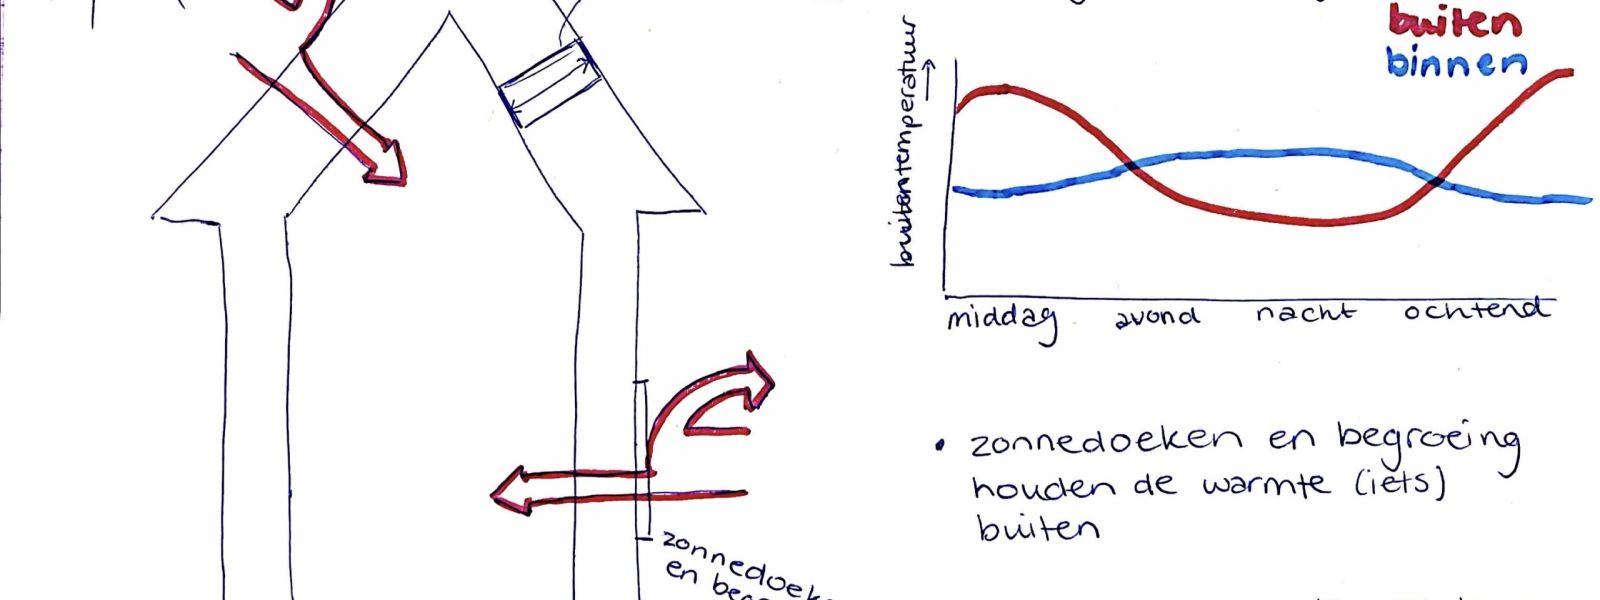 buiten
binnen
buitentemperatuur
middag avond nacht ochtend
• zonnedoeken en begroeing
houden de warmte (iets)
buiten
zonnedoek
en